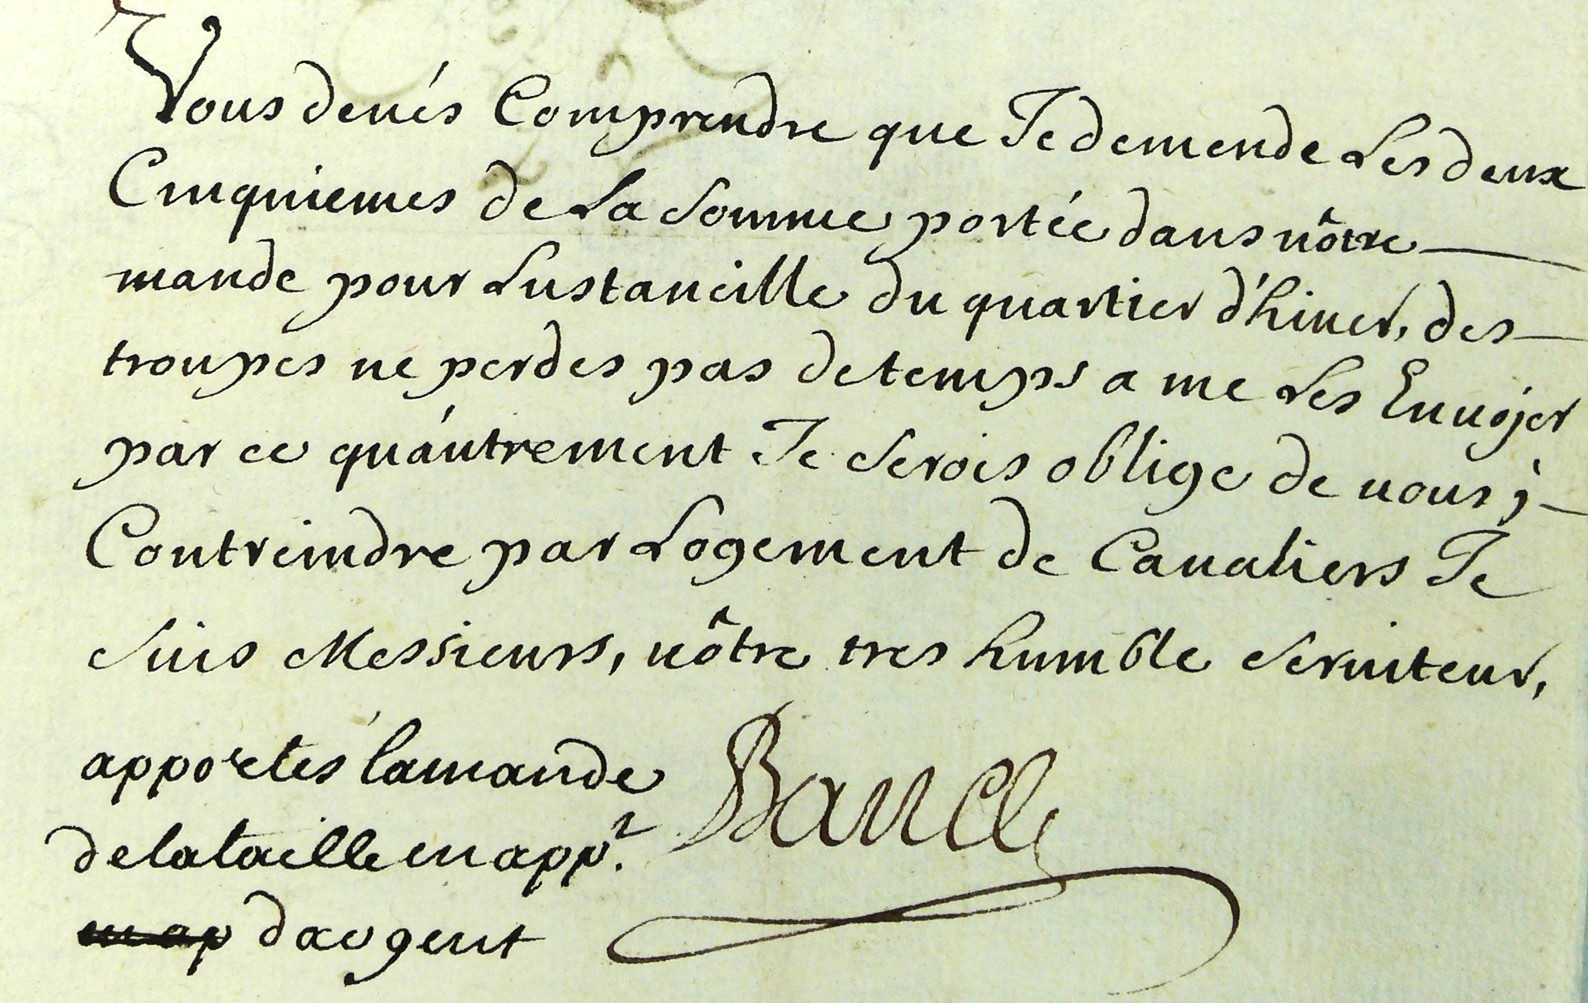 Vous devés Comprendre que Je demende Les deux
Cinquiemes de La Somme portée dans vôtre
mande pour Lustancille du quartier d'hiver, des
troupes ne perdes pas de temps a me Les Envojer
par ce qu'autrement Je Serois oblige de vous j
Contreindre par Logement de Cavaliers Je
Suis Messieurs, vôtre tres humble Serviteur,
apportes la mande
de la taille en app.r
d'argent